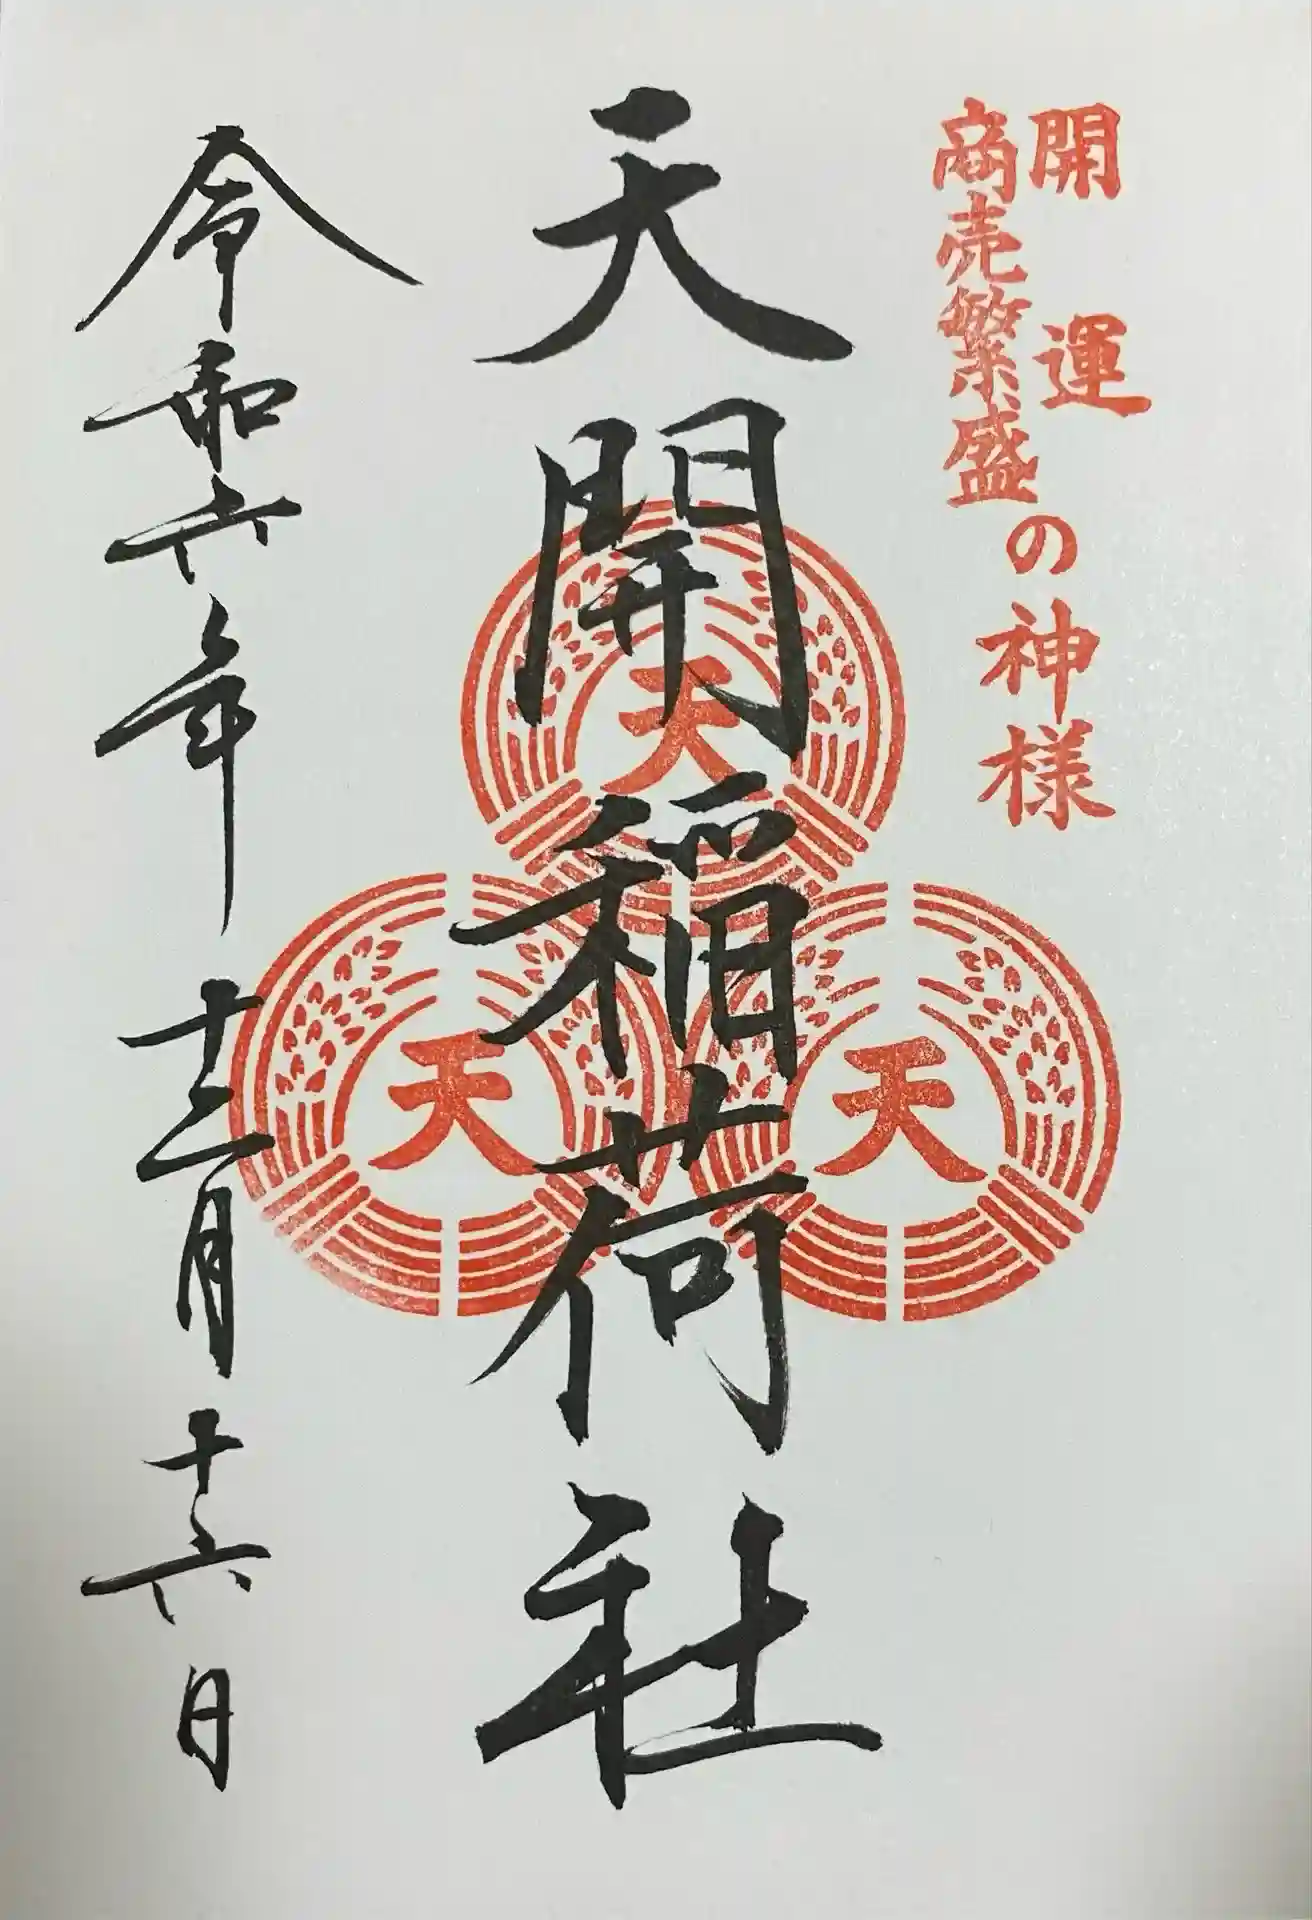 開運
商売繁盛
の神様
天開稲荷社
天
天
天
令和六年十二月十六日